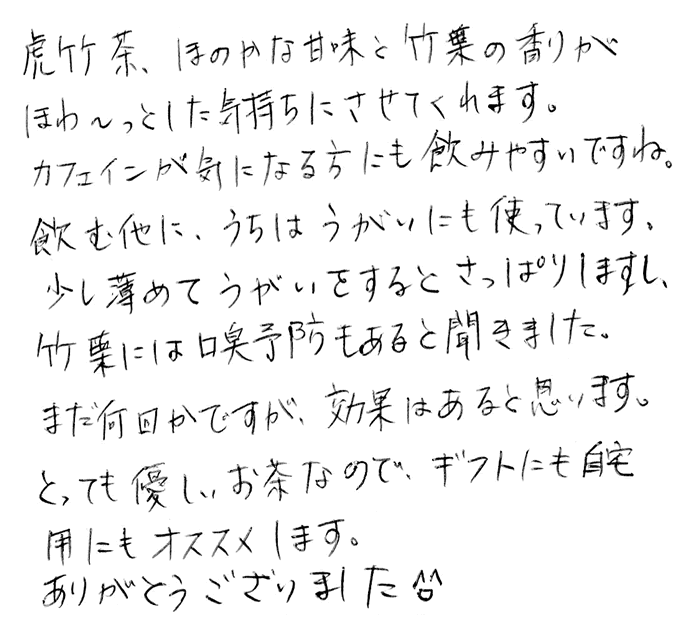 虎竹茶、ほのかな甘味と竹葉の香りが
ほわ〜っとした気持ちにさせてくれます。
カフェインが気になる方にも飲みやすいですね。
飲む他に、うちはうがいにも使っています。
少し薄めてうがいをするとさっぱりしますし、
竹葉には口臭予防もあると聞きました。
まだ何回かですが、効果はあると思います。
とっても優しいお茶なので、ギフトにも自宅
用にもオススメします。
ありがとうございました^^